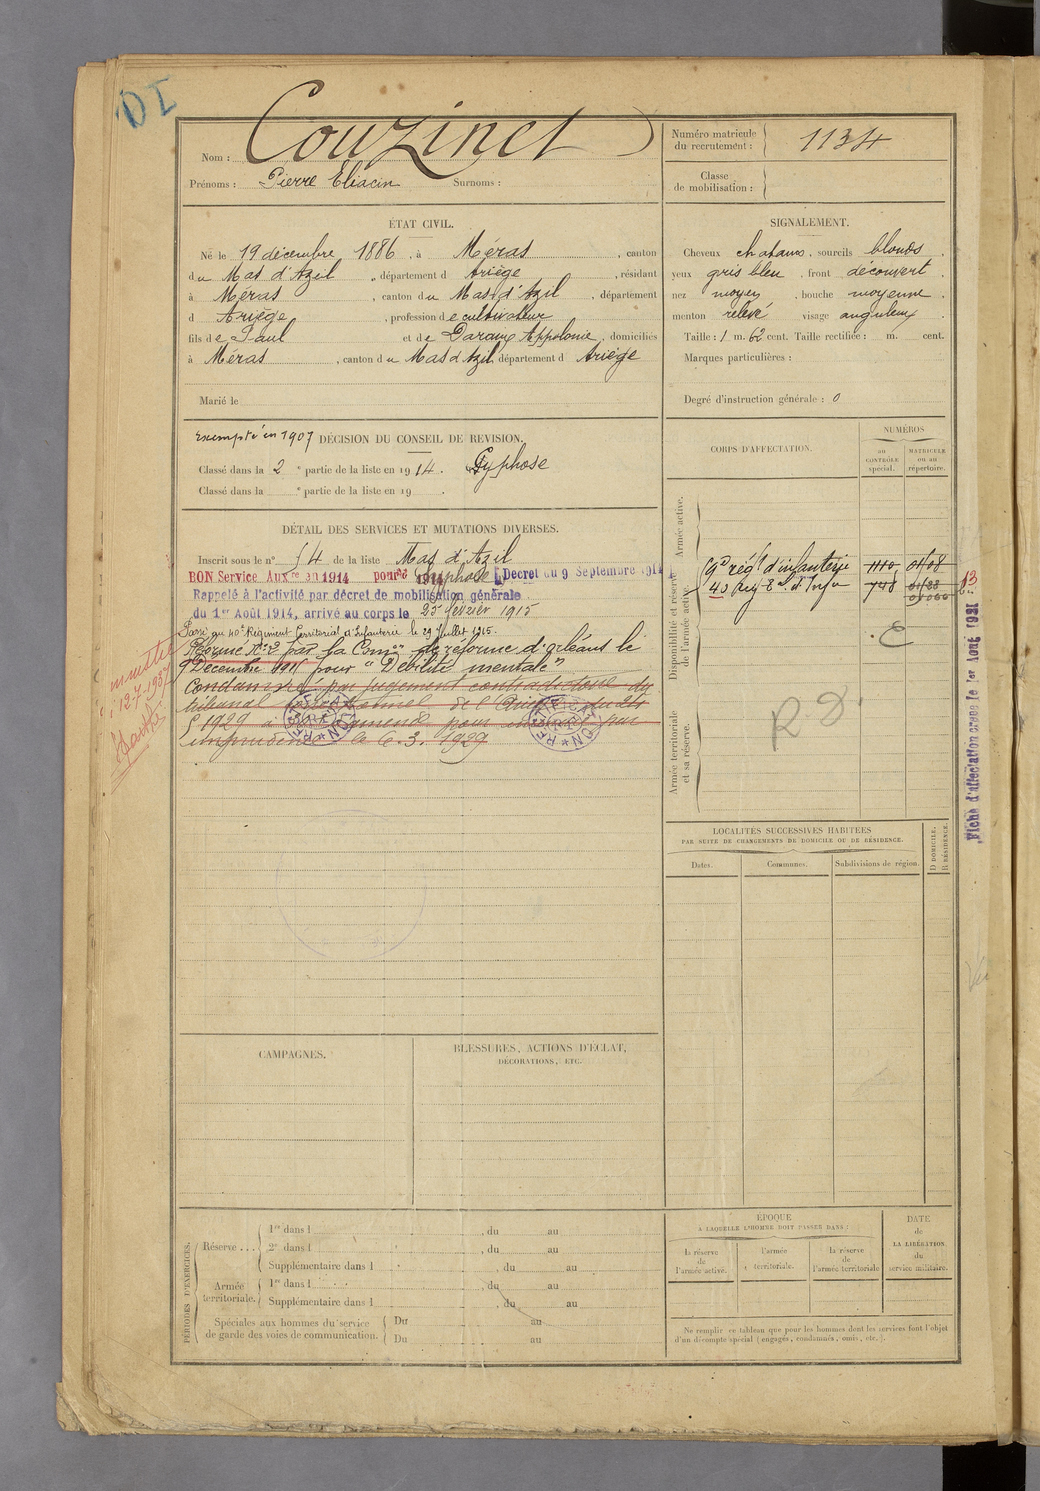 DI
Nom : Couzinet
Prénoms : Pierre Eliacin Surnoms :
Numéro matricule du recrutement : 1134
Classe de mobilisation :
ÉTAT CIVIL.
Né le 19 décembre 1886, à Méras, canton
du Mas d'Azil, département d Ariège, résidant
à Méras, canton du Mas d'Azil, département
d Ariège, profession de cultivateur
fils de Paul et de Daraux Appolonie, domiciliés
à Méras, canton du Mas d'Azil, département d Ariège
Marié le
SIGNALEMENT.
Cheveux chatains, sourcils blonds,
yeux gris bleu, front découvert,
nez moyen, bouche moyenne,
menton relevé visage anguleux
Taille : 1 m. 62 cent. Taille rectifiée : m. cent.
Marques particulières :
Degré d'instruction générale : 0
exempté en 1907 DÉCISION DU CONSEIL DE REVISION.
Classé dans la 2e partie de la liste en 1914. Cyphose
Classé dans la e partie de la liste en 19 .
DÉTAIL DES SERVICES ET MUTATIONS DIVERSES.
Inscrit sous le n° 54 de la liste Mas d'Azil
BON Service Auxre en 1914 pour cyphose (Decret du 9 Septembre 1914
Rappelé à l'activité par décret de mobilisation générale
du 1er Août 1914, arrivé au corps le 25 février 1915
Passé au 40e Régiment Territorial d'Infanterie le 29 Juillet 1915.
Réformé N° 2 par la Comon de réforme d'orléans le
9 Décembre 1915 pour "Débilité mentale"
Condamné par jugement contradictoire du
tribunal correctionnel de
1929 à amende pour par
imprudence le 6.3.1929
RECTIFICATION
RECTIFICATION
12-7-1937
CORPS D'AFFECTATION.
NUMÉROS
au CONTRÔLE spécial.
MATRICULE ou au répertoire.
Armée active.
Disponibilité et réserve de l'armée active.
59e régt d'infanterie 1110 0108
40 Reg Tal d'Infie 748
63
E
R. 8.
Armée territoriale et sa réserve.
Fiche d'affectation créée le 1er Août 1921
LOCALITÉS SUCCESSIVES HABITÉES
PAR SUITE DE CHANGEMENTS DE DOMICILE OU DE RÉSIDENCE.
Dates. Communes. Subdivisions de région.
D DOMICILE, R RÉSIDENCE.
CAMPAGNES.
BLESSURES, ACTIONS D'ÉCLAT,
DÉCORATIONS, ETC.
PÉRIODES D'EXERCICES.
Réserve ...
1re dans l , du au
2e dans l , du au
Supplémentaire dans l , du au
Armée territoriale.
1re dans l , du au
Supplémentaire dans l , du au
Spéciales aux hommes du service de garde des voies de communication.
Du au
Du au
ÉPOQUE
À LAQUELLE L'HOMME DOIT PASSER DANS :
la réserve de l'armée active.
l'armée territoriale.
la réserve de l'armée territoriale
DATE
de
LA LIBÉRATION
du
service militaire.
Ne remplir ce tableau que pour les hommes dont les services font l'objet
d'un décompte spécial (engagés, condamnés, omis, etc.).